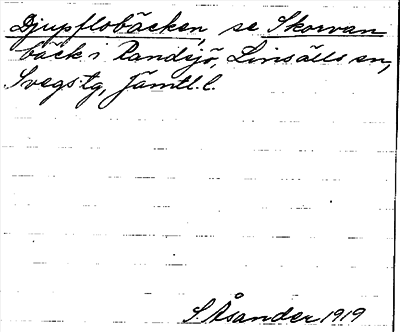 Djupflobäcken, se Skorvan
bäck i Randsjö, Linsälls sn,
Svegs tg, Jämtl. l.
S. Åsander 1919